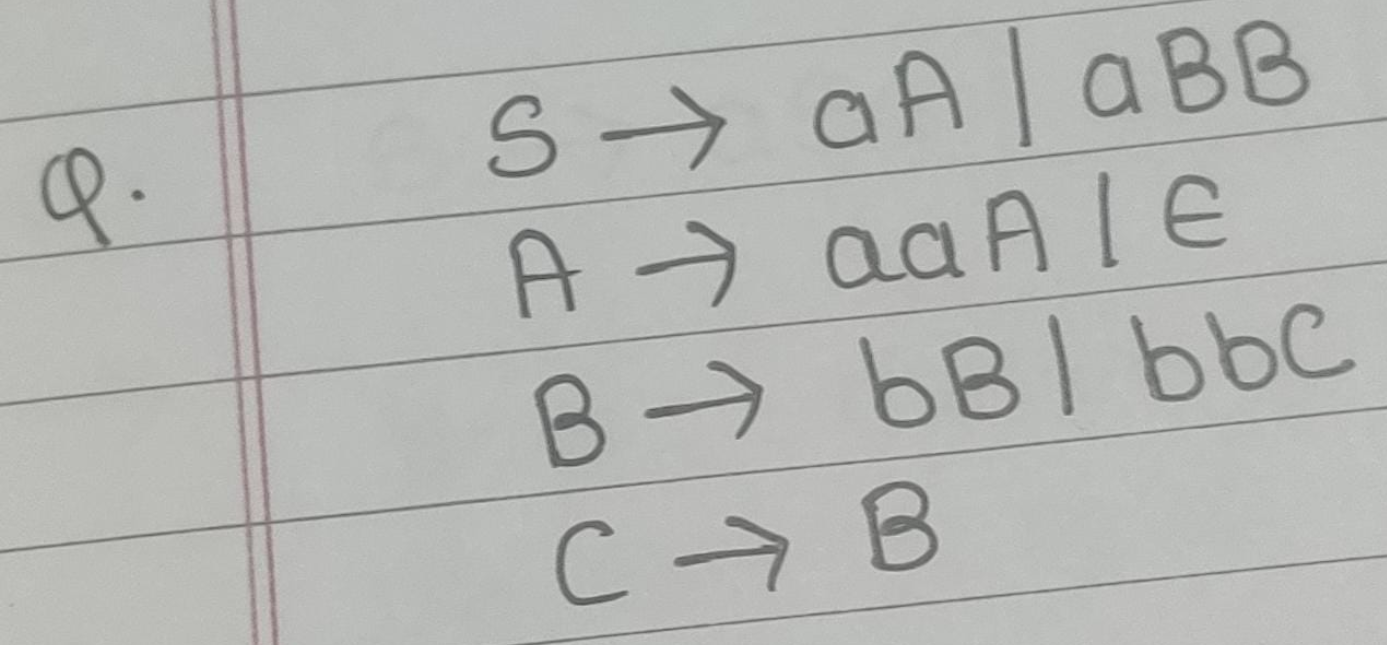 Q. S → aA | aBB
A → aaA | ϵ
B → bB | bbC
C → B